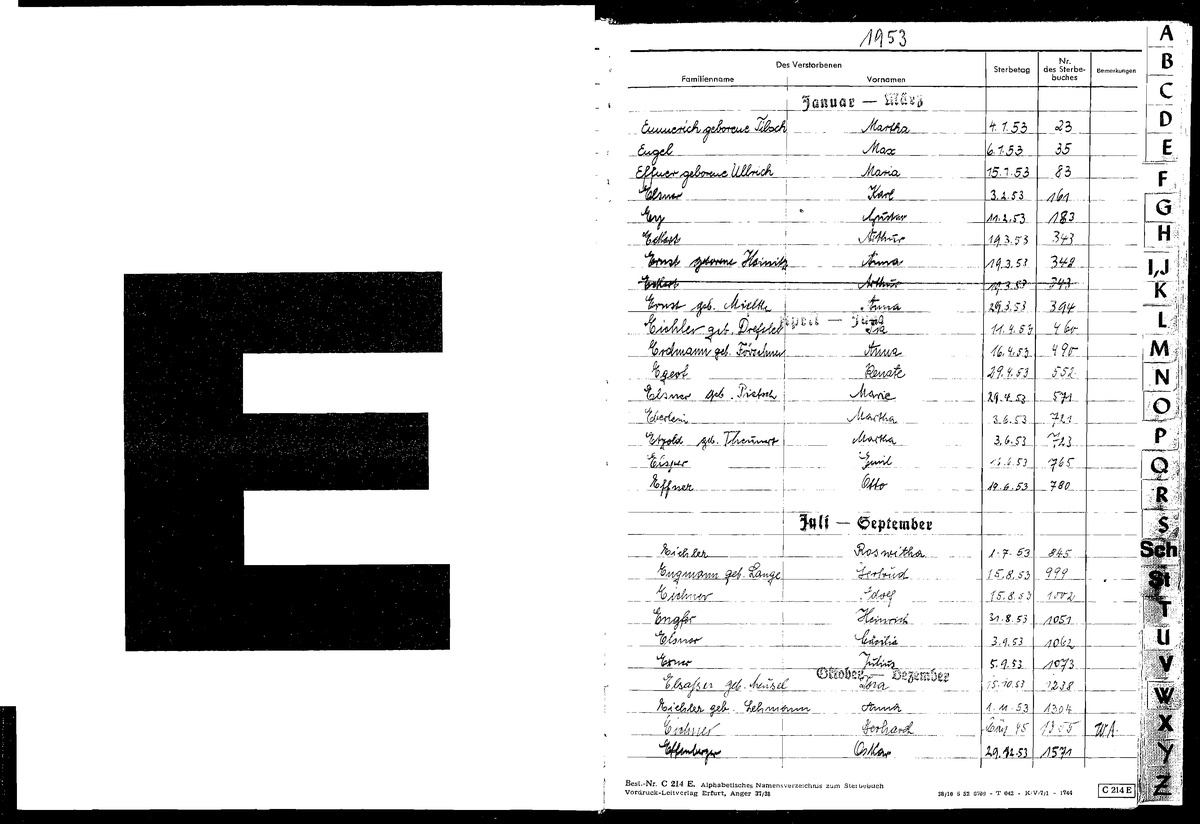 E
1953
Des Verstorbenen
Familienname Vornamen Sterbetag Nr. des Sterbe-buches Bemerkungen
Januar — März
Emmerich geborene Tilsch Martha 4.1.53 23
Engel Max 6.1.53 35
Effner geborene Ullrich Maria 15.1.53 83
Elsner Karl 3.2.53 161
Ey Gustav 11.2.53 183
Eckert Arthur 19.3.53 343
Ernst geborene Heinitz Anna 19.3.53 348
Eckert Arthur 19.3.53 343
Ernst geb. Mielke Anna 29.3.53 394
April — Juni
Eichler geb. Drefsel Ida 11.4.53 460
Erdmann geb. Förschner Anna 16.4.53 490
Egert Renate 29.4.53 552
Elsner geb. Pietsch Marie 29.4.53 571
Eberlein Martha 3.6.53 721
Etzold geb. Theunert Martha 3.6.53 723
Eisper Emil 765
Effner Otto 19.6.53 780
Juli — September
Eichler Roswitha 1.7.53 845
Engmann geb. Lange Gertrud 15.8.53 999
Eichner Adolf 15.8.53 1002
Engfer Heinrich 31.8.53 1051
Elsner Cäcilie 3.9.53 1062
Exner Julius 5.9.53 1073
Oktober — Dezember
Elsaßer geb. Meusel Dora 15.10.53 1238
Eichler geb. Lehmann Anna 1.11.53 1304
Eichner Gerhard 45 1355
Effenberger Oskar 29.12.53 1571
Best.-Nr. C 214 E. Alphabetisches Namensverzeichnis zum Sterbebuch
Vordruck-Leitverlag Erfurt, Anger 37/38
C 214 E
A
B
C
D
E
F
G
H
I,J
K
L
M
N
O
P
Q
R
S
Sch
St
T
U
V
W
X
Y
Z